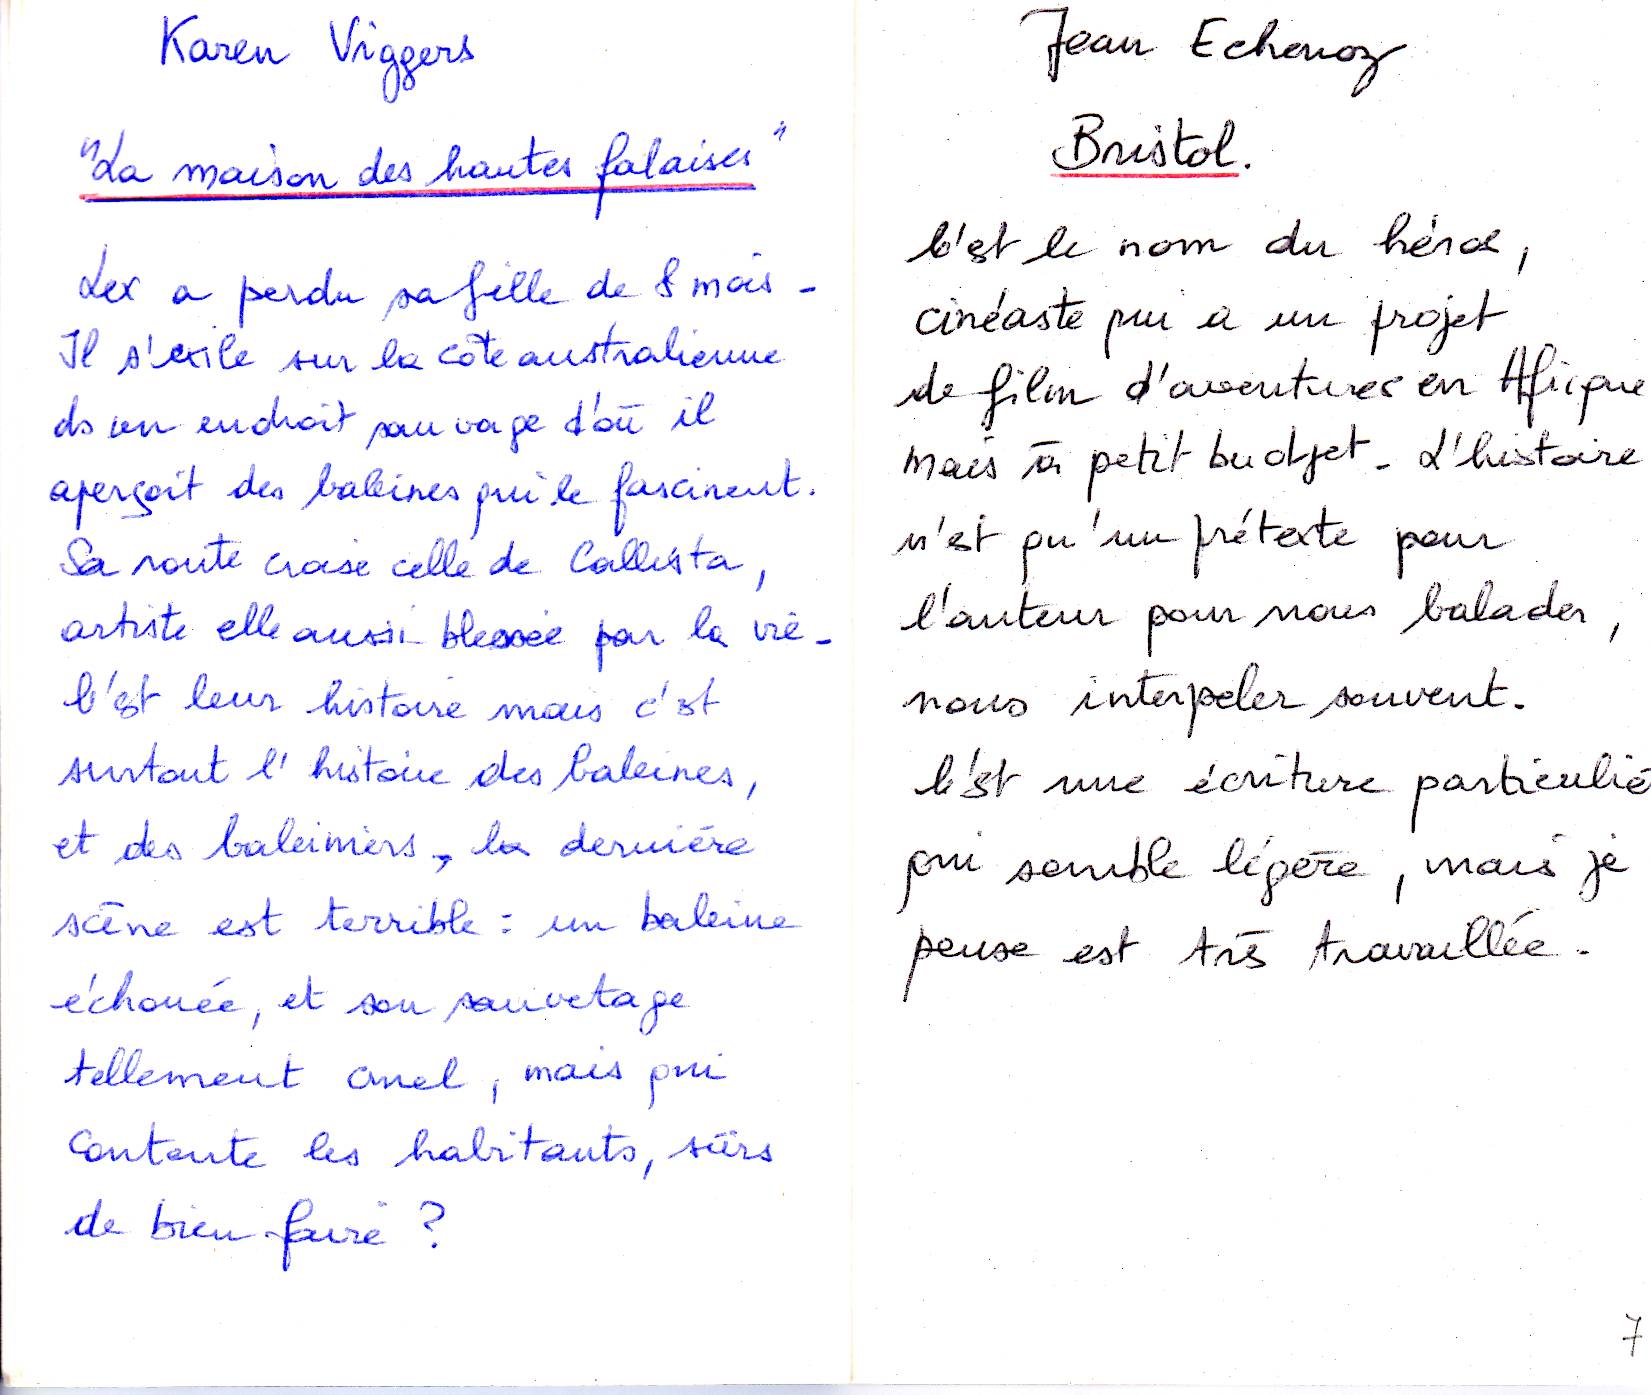 Karen Viggers
"La maison des hautes falaises"
Lex a perdu sa fille de 8 mois -
Il s'exile sur la côte australienne
ds un endroit sauvage d'où il
aperçoit des baleines qui le fascinent.
Sa route croise celle de Callista,
artiste elle aussi blessée par la vie -
C'est leur histoire mais c'est
surtout l'histoire des baleines,
et des baleiniers, la dernière
scène est terrible : un baleine
échouée, et son sauvetage
tellement cruel, mais qui
contente les habitants, sûrs
de bien faire ?
Jean Echenoz
Bristol.
C'est le nom du héros,
cinéaste qui a un projet
de film d'aventures en Afrique
mais à petit budget - L'histoire
n'est qu'un prétexte pour
l'auteur pour nous balader,
nous interpeler souvent.
C'est une écriture particuliè
qui semble légère, mais je
pense est très travaillée -
7